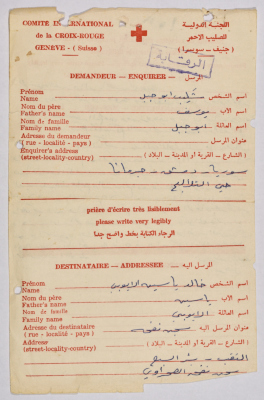 COMITE INTERNATIONAL
de la CROIX-ROUGE
GENEVE - (Suisse)
اللجنة الدولية
للصليب الاحمر
(جنيف - سويسرا)
الرقابة
DEMANDEUR — ENQUIRER — المرسل
Prénom
Name
اسم الشخص
Nom du père
Father's name
اسم الاب يوسف
Nom de famille
Family name
اسم العائلة ابو جبل
Adresse du demandeur
(rue - localité - pays)
عنوان المرسل
Enquirer's address
(street-locality-country)
(الشارع - القرية او المدينة - البلاد)
سوريا - دمشق - جرمانا
حي
prière d'écrire très lisiblement
please write very legibly
الرجاء الكتابة بخط واضح جدا
DESTINATAIRE — ADDRESSEE — المرسل اليه
Prénom
Name
اسم الشخص خالد ياسين الايوبي
Nom du père
Father's name
اسم الاب ياسين
Nom de famille
Family name
اسم العائلة الايوبي
Adresse du destinataire
(rue - localité - pays)
عنوان المرسل اليه سجن نفحة
Address
(street-locality-country)
(الشارع - القرية او المدينة - البلاد)
النقب
سجن نفحة الصحراوي